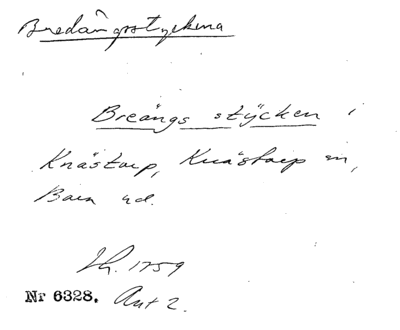 Bredångsstyckena
Breängs stycken i
Knästorp, Knästorp sn,
Bara hd.
1759
Nr 6328. Akt 2.